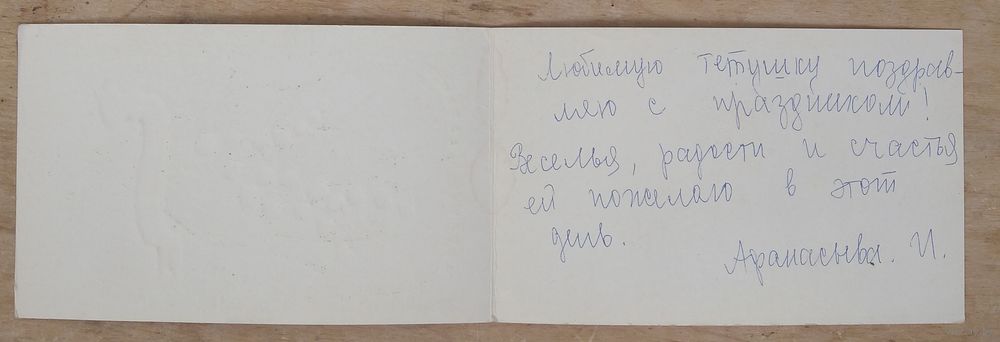 Любимую тетушку поздрав-
ляю с праздником!
Веселья, радости и счастья
ей пожелаю в этот
день.
Афанасьева. И.